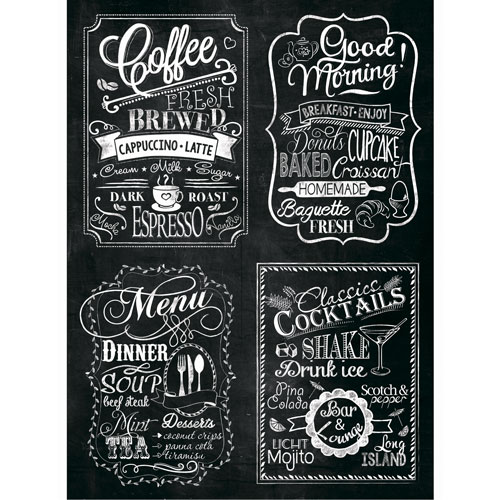 Coffee
FRESH
BREWED
CAPPUCCINO • LATTE
Cream • Milk • Sugar
DARK ROAST
Mocha
Vanilla
ESPRESSO
Good
Morning!
BREAKFAST • ENJOY
Donuts CUPCAKE
BAKED Croissant
HOMEMADE
Baguette
FRESH
Menu
DINNER
SOUP
beef steak
Mint
TEA
Desserts
coconut crips
panna cola
tiramisu
Classics
COCKTAILS
SHAKE
Drink ice
Pina
Colada
Scotch &
pepper
Bar
&
Lounge
LICHT
Mojito
Long
ISLAND